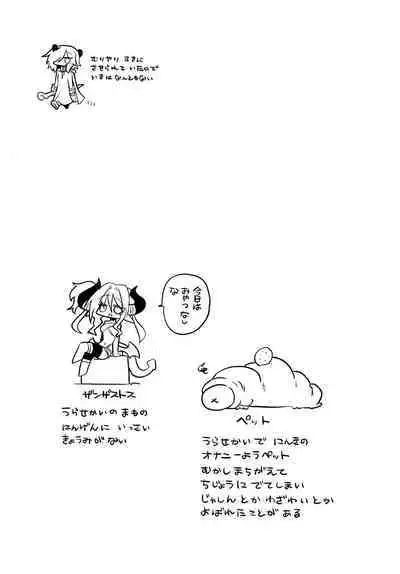 むりやり すきに
させられて いたので
いまは なんともない
今日は
おやつなし
な
ザンザストス
うらせかいの まもの
にんげんに いっさい
きょうみが ない
ペット
うらせかいで にんきの
オナニーようペット
むかし まちがえて
ちじょうに でてしまい
じゃしんとか わざわいとか
よばれたことが ある